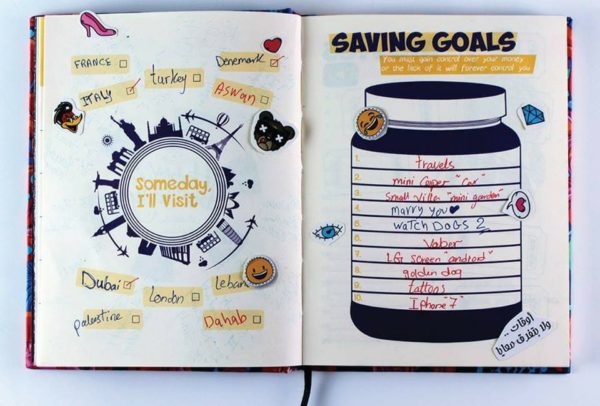 FRANCE
Denemark
turkey
ITALY
Aswan
Someday,
I'll Visit
Dubai
London
palestine
Dahab
SAVING GOALS
You must gain control over your money
or the lack of it will forever control you
1. travels
2. mini Coper "car"
3. Small villa "mini garden"
4. marry you
5. WATCH DOGS 2
6. Vaber
7. LG screen "android"
8. golden dog
9. tattoos
10. Iphone "7"
أوقات ..
ولا بتفرق معايا